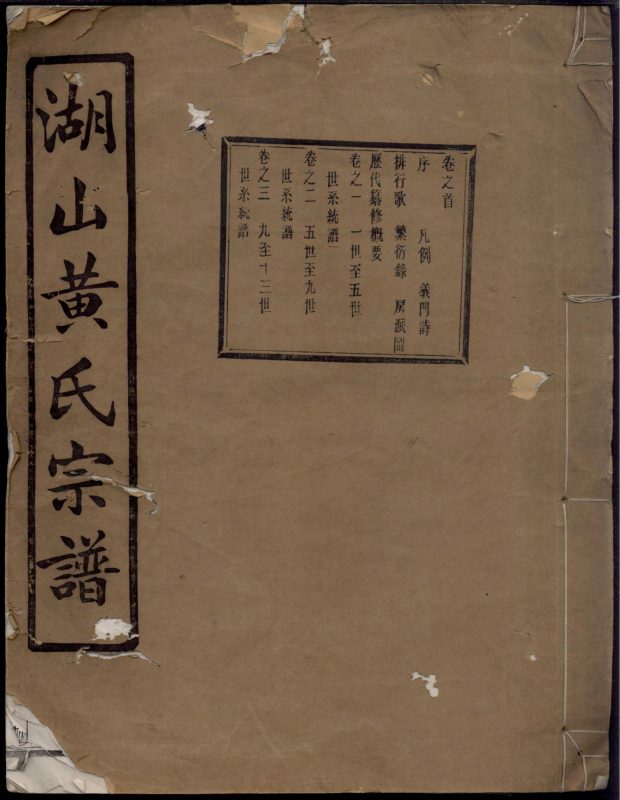 湖山黄氏宗譜
卷之首
序 凡例 義門詩
排行歌 繁衍錄 房派圖
歷代纂修概要
卷之一 一世至五世
世系統譜
卷之二 五世至九世
世系統譜
卷之三 九至十三世
世系統譜